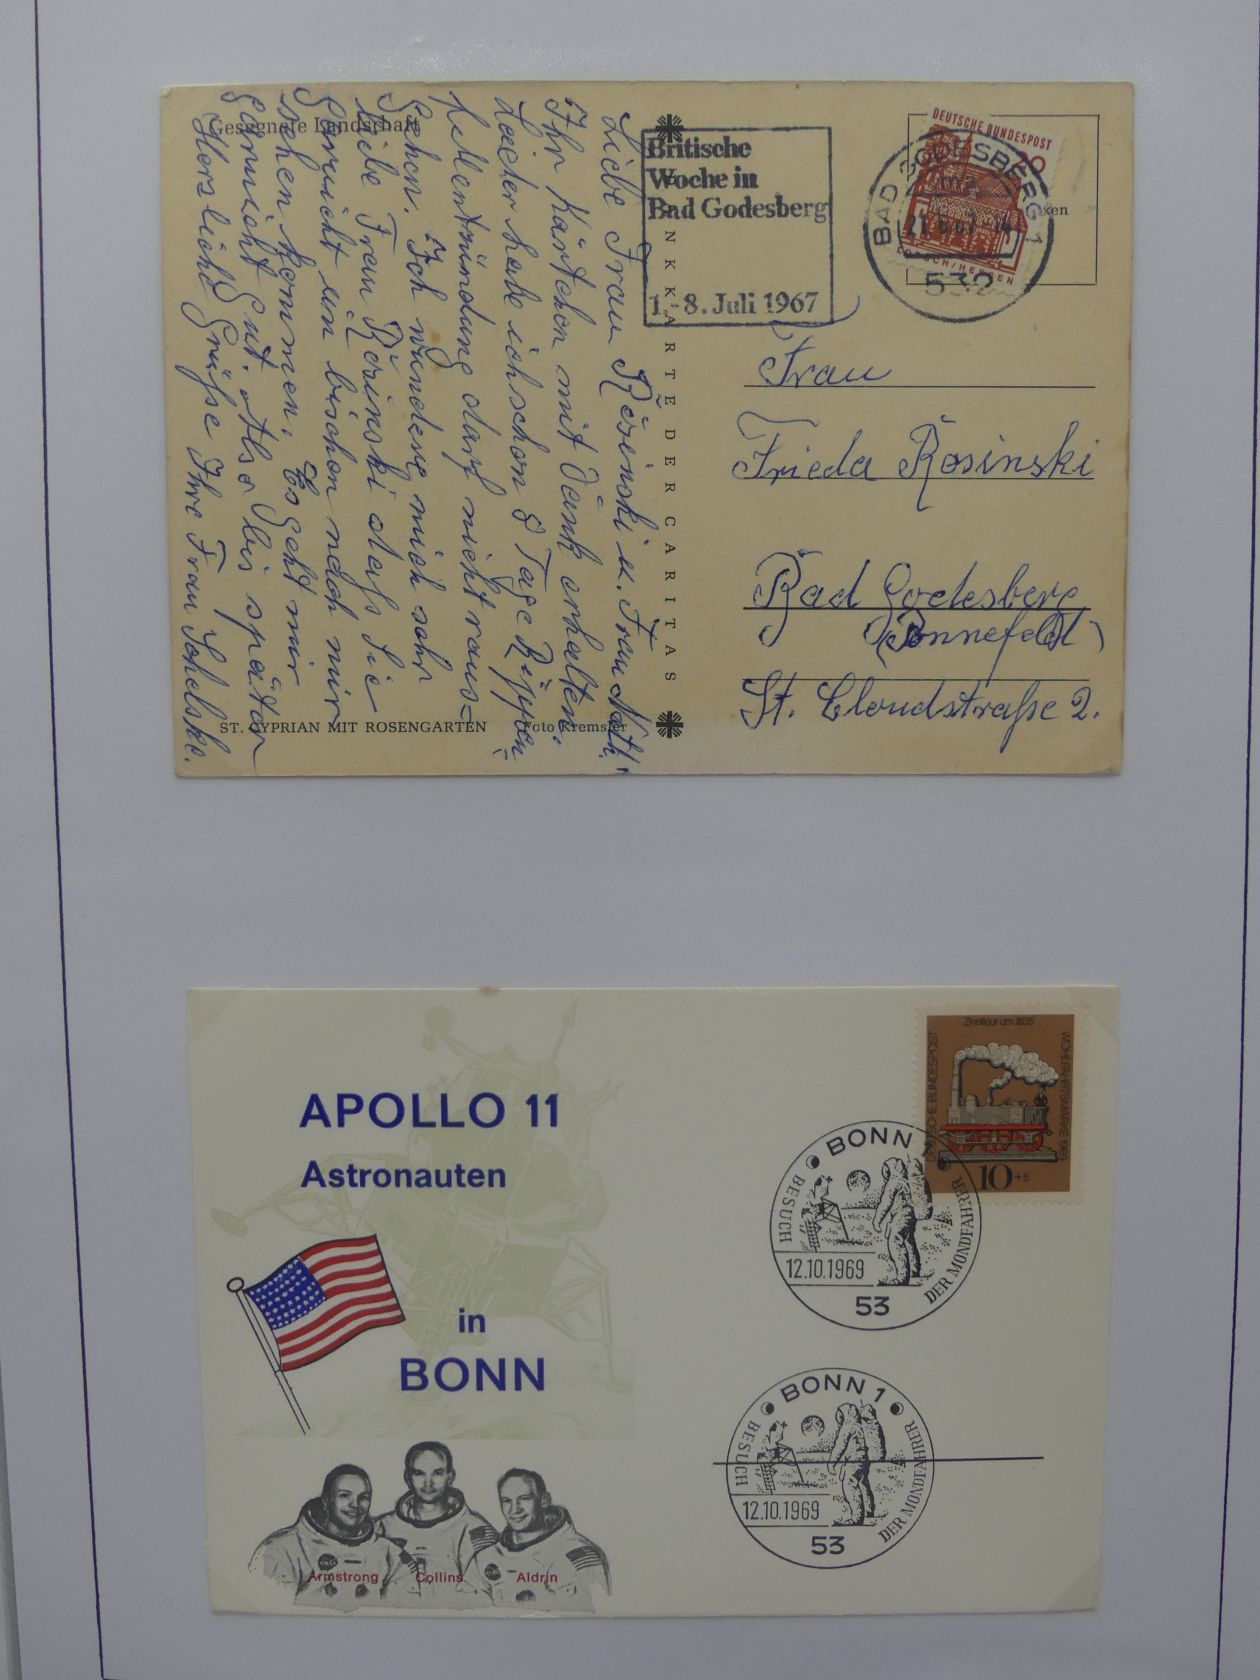 Gesegnete Landschaft
Liebe Frau Rosinski u. Frau
Ihr Kärtchen mit Dank erhalten.
Leider habe ich schon 8 Tage Rippen
fellentzündung darf nicht raus=
gehen. Ich wundere mich sehr
liebe Frau Rosinski dass Sie
garnicht ein bischen nach mir
sehen kommen. Es geht mir
garnicht gut. Also bis später
Herzliche Grüße Ihre Frau
ST. CYPRIAN MIT ROSENGARTEN Foto Kremsler
DANKKARTE DER CARITAS
Britische
Woche in
Bad Godesberg
1.-8. Juli 1967
BAD GODESBERG 1
532
DEUTSCHE BUNDESPOST
20
LORSCH/HESSEN
Frau
Frieda Rosinski
Bad Godesberg
(Bonnefeld)
St. Cloudstraße 2.
APOLLO 11
Astronauten
in
BONN
Armstrong Collins Aldrin
Zinnfigur um 1835
DEUTSCHE BUNDESPOST
WOHLFAHRTSMARKE 1969
10+5
BONN 1
BESUCH DER MONDFAHRER
12.10.1969
53
BONN 1
BESUCH DER MONDFAHRER
12.10.1969
53